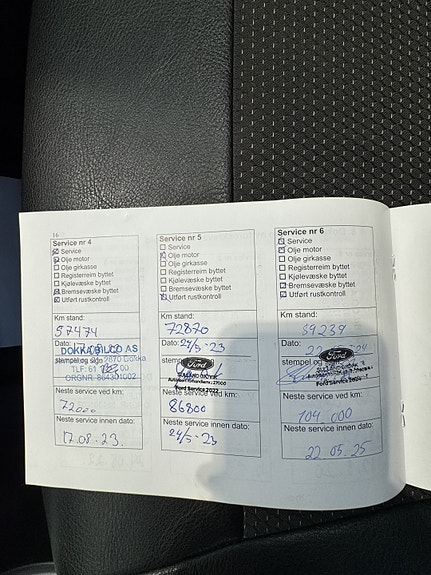 16
Service nr 4
Service
Olje motor
Olje girkasse
Registerreim byttet
Kjølevæske byttet
Bremsevæske byttet
Utført rustkontroll
Km stand:
57474
Dato:
DOKKA BILCO AS
stempel og sign 2870 Dokka
TLF: 61
ORGNR. 864301002
Neste service ved km:
72000
Neste service innen dato:
17.08.23.
Service nr 5
Service
Olje motor
Olje girkasse
Registerreim byttet
Kjølevæske byttet
Bremsevæske byttet
Utført rustkontroll
Km stand:
72870
Dato: 24/5-23
stempel
Ford
Ford Service 2022
Neste service ved km:
86800
Neste service innen dato:
24/5-23
Service nr 6
Service
Olje motor
Olje girkasse
Registerreim byttet
Kjølevæske byttet
Bremsevæske byttet
Utført rustkontroll
Km stand:
89239
Dato:
stempel og
Ford
Ford Service 2024
Neste service ved km:
104 000
Neste service innen dato:
22 05.25